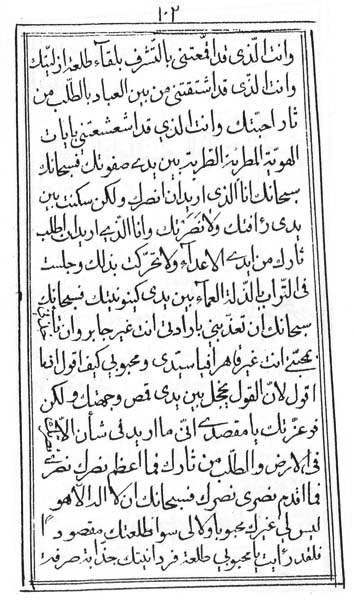 ١٠٢
وانت الّذی قد اقمعتنی بالتّشرف بلقاء طلعة ازلیّتك
وانت الّذی قد اشتقتنی من بین العباد بالطّلب من
ثار احبّتك وانت الّذی قد اشعشعتنی بایات
الهویّة المطریّة الطّربیّة بین یدی صفوتك فسبحانك
سبحانك انا الّذی ارید ان انصرك ولكن سكنت بین
یدی رأفتك ولا نصرتك وانا الّذی ارید ان اطلب
ثارك من ایدی الاعداء ولا تحرّكت بذلك وجلست
فی التّراب بالذلّة العماء بین یدی كینونیّتك فسبحانك
سبحانك ان تعذّبنی بارادتی انت غیر جابر وان تأ
بمحبّتی انت غیر قاهر فیا سیّدی ومحبوبی كیف اقول انّما
اقول لانّ القول مخجل بین یدی قمص وجهتك ولكن
فوعزّتك یا مقصدی انّی ما ارید فی شأن الّا
فی الارض والطّلب من ثارك فما اعظم نصرك نصری
فما اقدم نصری نصرك فسبحانك ان لا اله الّا هو
لیس لی غیرك محبوبا ولا لی سوا طلعتك مقصودا
فلقد رأیت یا محبوبی طلعة فردانیّتك جذّابة صرفة